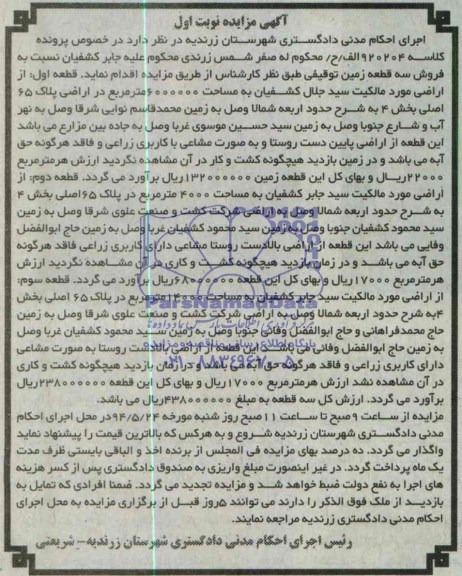 آگهی مزایده نوبت اول
اجرای احکام مدنی دادگستری شهرستان زرندیه در نظر دارد در خصوص پرونده
کلاسه ۹۲۰۲۰۴الف/ح/ محکوم له صفر شمس زرندی محکوم علیه جابر کشفیان نسبت به
فروش سه قطعه زمین توقیفی طبق نظر کارشناس از طریق مزایده اقدام نماید. قطعه اول: از
اراضی مورد مالکیت سید جلال کشفیان به مساحت ۶۰۰۰۰۰۰مترمربع در اراضی پلاک ۶۵
اصلی بخش ۴ به شرح حدود اربعه شمالا وصل به زمین محمدقاسم نوایی شرقا وصل به نهر
آب و شارع جنوبا وصل به زمین سید حسین موسوی غربا وصل به جاده بین مزارع می باشد
این قطعه از اراضی پایین دست روستا و به صورت مشاعی با کاربری زراعی و فاقد هرگونه حق
آبه می باشد و در زمین بازدید هیچگونه کشت و کار در آن مشاهده نگردید ارزش هرمترمربع
۲۲۰۰۰ریال و بهای کل این قطعه زمین ۱۳۲۰۰۰۰۰۰ریال برآورد می گردد. قطعه دوم: از
اراضی مورد مالکیت سید جابر کشفیان به مساحت ۴۰۰۰ مترمربع در پلاک ۶۵اصلی بخش ۴
به شرح حدود اربعه شمالا وصل به اراضی شرکت کشت و صنعت علوی شرقا وصل به زمین
سید محمود کشفیان جنوبا وصل به زمین سید محمود کشفیان غربا وصل به زمین حاج ابوالفضل
وفایی می باشد این قطعه از اراضی بالادست روستا مشاعی دارای کاربری زراعی و فاقد هرگونه
حق آبه می باشد و در زمان بازدید هیچگونه کشت و کاری در آن مشاهده نگردید ارزش
هرمترمربع ۱۷۰۰۰ریال و بهای کل این قطعه ۶۸۰۰۰۰۰۰ریال برآورد می گردد. قطعه سوم:
از اراضی مورد مالکیت سید جابر کشفیان به مساحت ۱۴۰۰۰مترمربع در پلاک ۶۵ اصلی بخش
۴به شرح حدود اربعه شمالا وصل به اراضی شرکت کشت و صنعت علوی شرقا وصل به زمین
حاج محمدفراهانی و حاج ابوالفضل وفائی جنوبا وصل به زمین سید محمود کشفیان غربا وصل
به زمین حاج ابوالفضل وفائی می باشد. این قطعه از اراضی بالادست روستا به صورت مشاعی
دارای کاربری زراعی و فاقد هرگونه حق آبه می باشد و در زمان بازدید هیچگونه کشت و کاری
در آن مشاهده نشد ارزش هرمترمربع ۱۷۰۰۰ریال و بهای کل این قطعه ۲۳۸۰۰۰۰۰۰ریال
برآورد می گردد. ارزش کل سه قطعه به مبلغ ۴۳۸۰۰۰۰۰۰ریال می باشد.
مزایده از ساعت ۹صبح تا ساعت ۱۱صبح روز شنبه مورخه ۹۴/۵/۲۴در محل اجرای احکام
مدنی دادگستری شهرستان زرندیه شروع و به هرکس که بالاترین قیمت را پیشنهاد نماید
واگذار می گردد. ده درصد بهای مزایده فی المجلس از برنده اخذ و الباقی بایستی ظرف مدت
یک ماه پرداخت گردد. در غیر اینصورت مبلغ واریزی به صندوق دادگستری پس از کسر هزینه
های اجرا به نفع دولت ضبط خواهد شد و مزایده تجدید می گردد. ضمنا افرادی که تمایل به
بازدید از ملک فوق الذکر را دارند می توانند ۵روز قبل از برگزاری مزایده به محل اجرای
احکام مدنی دادگستری زرندیه مراجعه نمایند.
رئیس اجرای احکام مدنی دادگستری شهرستان زرندیه- شریعتی
ParsNamadData
۰۲۱-۸۸۳۴۹۶۷۰-۵